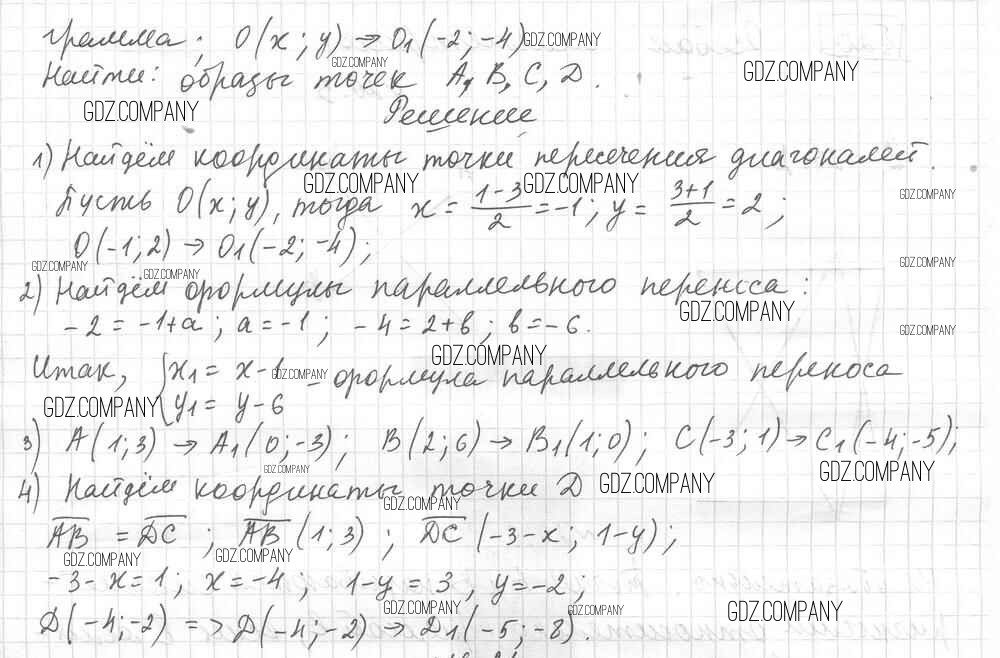 грамма; O(x; y) → O₁(-2; -4) GDZ.COMPANY
GDZ.COMPANY
Найти: образы точек A, B, C, D. GDZ.COMPANY
GDZ.COMPANY Решение
1) Найдём координаты точки пересечения диагоналей.
GDZ.COMPANY GDZ.COMPANY GDZ.COMPANY
Пусть O(x; y), тогда x = (1-3)/2 = -1; y = (3+1)/2 = 2;
O(-1; 2) → O₁(-2; -4);
GDZ.COMPANY GDZ.COMPANY GDZ.COMPANY
2) Найдём формулы параллельного переноса:
GDZ.COMPANY
-2 = -1+a; a = -1; -4 = 2+b; b = -6.
GDZ.COMPANY
GDZ.COMPANY
Итак, { x₁ = x-1 GDZ.COMPANY – формула параллельного переноса
GDZ.COMPANY y₁ = y-6
3) A(1; 3) → A₁(0; -3); B(2; 6) → B₁(1; 0); C(-3; 1) → C₁(-4; -5);
GDZ.COMPANY GDZ.COMPANY
4) Найдём координаты точки D GDZ.COMPANY
GDZ.COMPANY
AB = DC; AB(1; 3); DC(-3-x; 1-y);
GDZ.COMPANY GDZ.COMPANY
-3-x = 1; x = -4; 1-y = 3, y = -2;
GDZ.COMPANY GDZ.COMPANY GDZ.COMPANY
D(-4; -2) => D(-4; -2) → D₁(-5; -8).